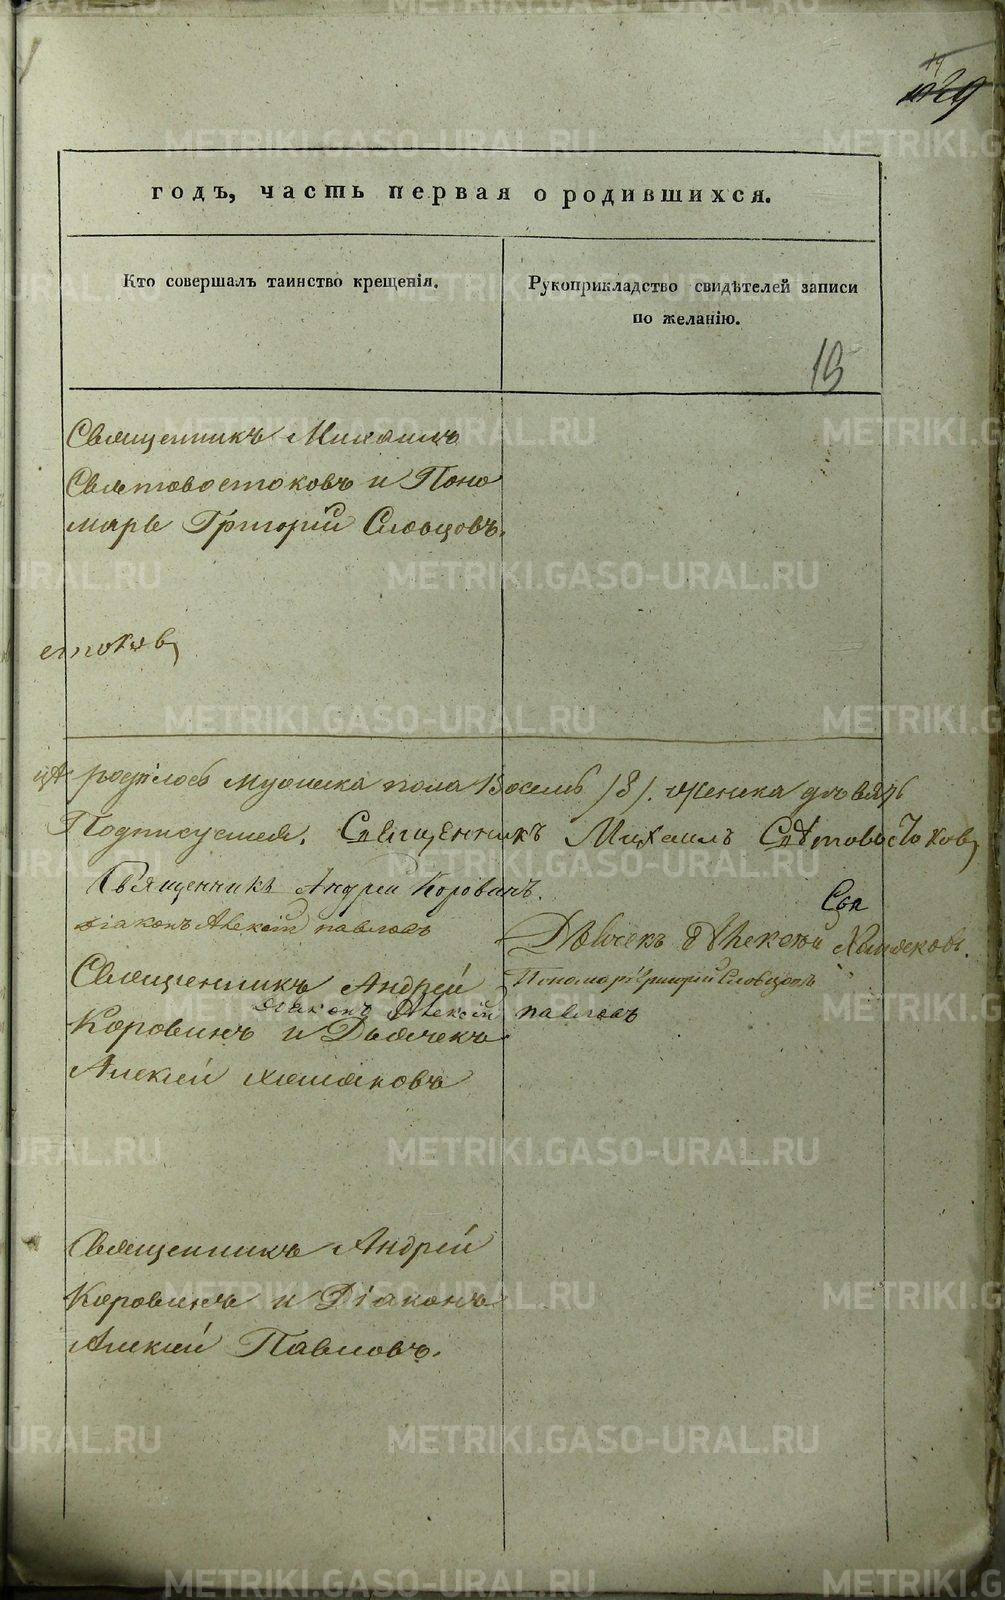 годъ, часть первая о родившихся.
Кто совершалъ таинство крещенія.
Рукоприкладство свидѣтелей записи
по желанію.
Священникъ Михаилъ
Святовостоковъ и Поно
марь Григорій Словцовъ.
стоковъ
родилось мужеска пола Восемь /8/. женска девять
Подписуемся. Священникъ Михаилъ Святовостоковъ
Священникъ Андрей Коровинъ.
діаконъ Алексій павловъ
Дьячекъ Алексѣй Хлмаковъ.
Пономарь Григорій Словцовъ
Священникъ Андрей
діаконъ Алексій павловъ
Коровинъ и Дьячекъ
Алексій
Священникъ Андрей
Коровинъ и Діаконъ
Алексій Павловъ.
METRIKI.GASO-URAL.RU